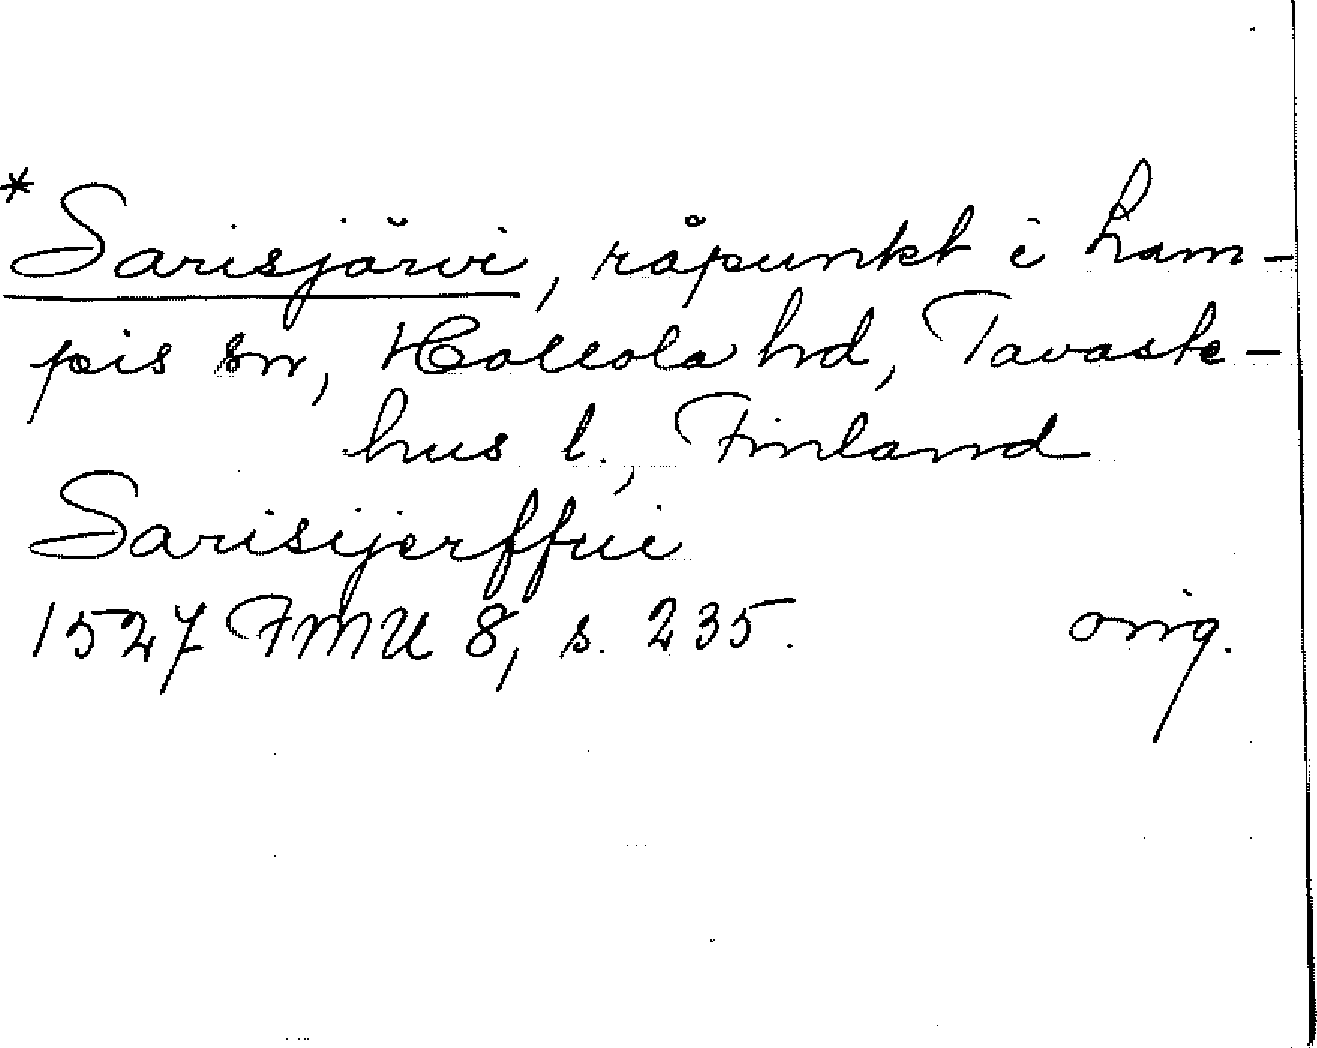 *Sarisjärvi, råpunkt i Lam-
pis sn, Hollola hd, Tavaste-
hus l., Finland
Sarisijerffui
1527 FMU 8, s. 235. orig.